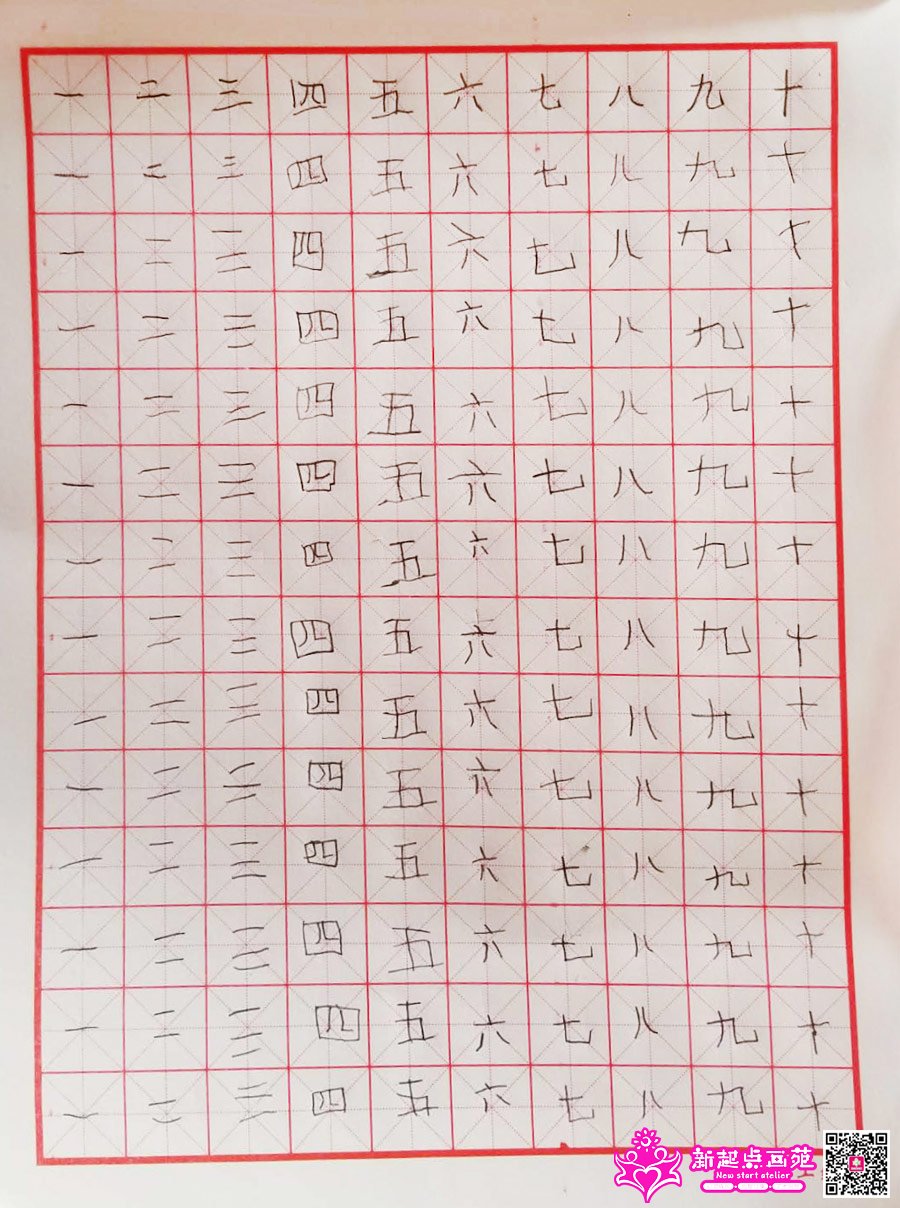 一二三四五六七八九十
一二三四五六七八九十
一二三四五六七八九十
一二三四五六七八九十
一二三四五六七八九十
一二三四五六七八九十
一二三四五六七八九十
一二三四五六七八九十
一二三四五六七八九十
一二三四五六七八九十
一二三四五六七八九十
一二三四五六七八九十
一二三四五六七八九十
一二三四五六七八九十
新起点画苑
New start atelier